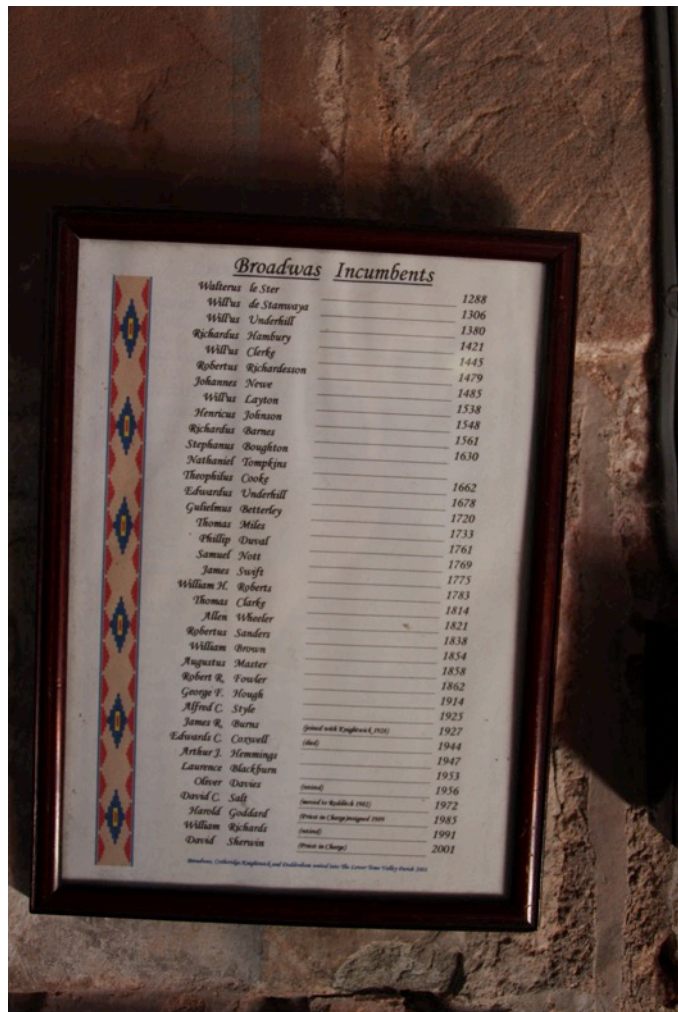 Broadwas Incumbents
Walterus le Ster 1288
Will'us de Stanwaya 1306
Will'us Underhill 1380
Richardus Hambury 1421
Will'us Clerke 1445
Robertus Richardesson 1479
Johannes Newe 1485
Will'us Layton 1538
Henricus Johnson 1548
Richardus Barnes 1561
Stephanus Boughton 1630
Nathaniel Tompkins
Theophilus Cooke 1662
Edwardus Underhill 1678
Gulielmus Betterley 1720
Thomas Miles 1733
Phillip Duval 1761
Samuel Nott 1769
James Swift 1775
William H. Roberts 1783
Thomas Clarke 1814
Allen Wheeler 1821
Robertus Sanders 1838
William Brown 1854
Augustus Master 1858
Robert R. Fowler 1862
George F. Hough 1914
Alfred C. Style 1925
James R. Burns (joined with Knightwick 1926) 1927
Edwards C. Coxwell (died) 1944
Arthur J. Hemmings 1947
Laurence Blackburn 1953
Oliver Davies (retired) 1956
David C. Salt (moved to Redditch 1982) 1972
Harold Goddard (Priest in Charge/resigned 1989 1985
William Richards (retired) 1991
David Sherwin (Priest in Charge) 2001
Broadwas, Cotheridge Knightwick and Doddenham united into The Lower Teme Valley Parish